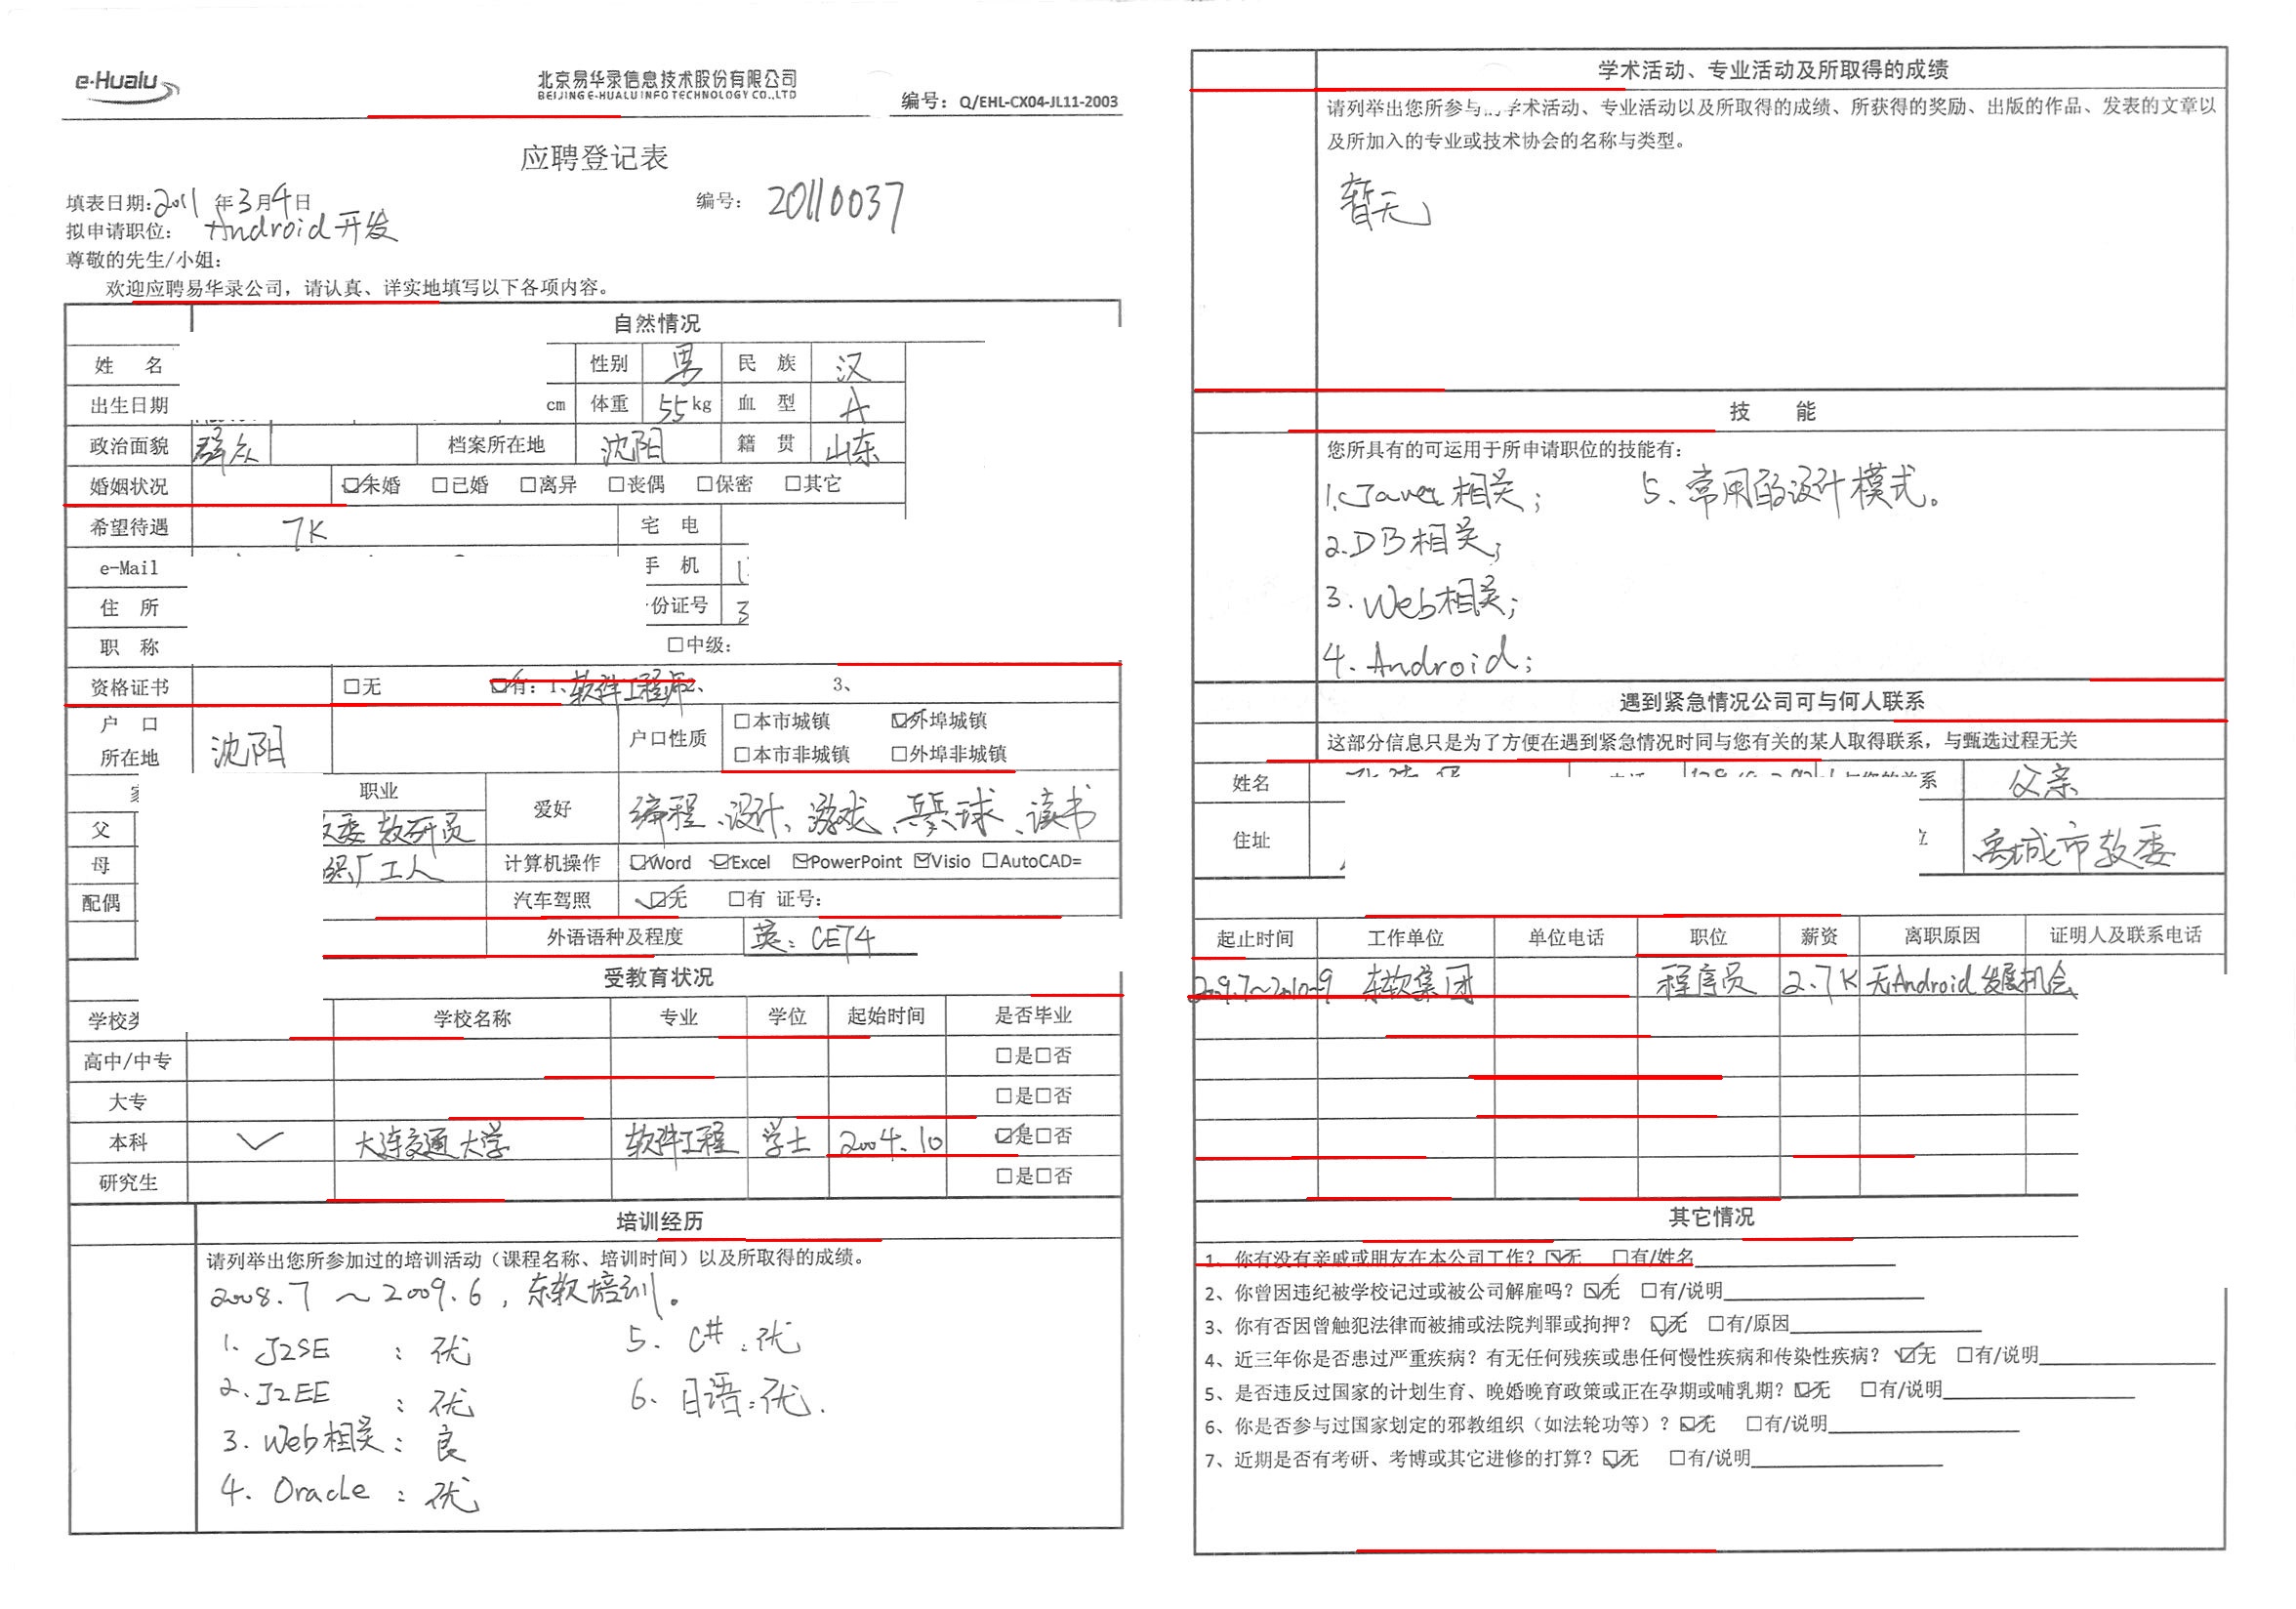 e-Hualu
北京易华录信息技术股份有限公司
BEIJING E-HUALU INFO TECHNOLOGY CO.,LTD
编号：Q/EHL-CX04-JL11-2003
应聘登记表
填表日期：2011 年 3 月 4 日
编号： 20110037
拟申请职位： Android 开发
尊敬的先生/小姐：
欢迎应聘易华录公司，请认真、详实地填写以下各项内容。
自然情况
姓 名 性别 男 民 族 汉
出生日期 cm 体重 55 kg 血 型 A
政治面貌 群众 档案所在地 沈阳 籍 贯 山东
婚姻状况 ☑未婚 □已婚 □离异 □丧偶 □保密 □其它
希望待遇 7K 宅 电
e-Mail 手 机 1
住 所 份证号 3
职 称 □中级：
资格证书 □无 ☑有：1、软件工程师2、 3、
户 口
所在地 沈阳 户口性质 □本市城镇 ☑外埠城镇
□本市非城镇 □外埠非城镇
职业 爱好 编程、设计、游戏、乒乓球、读书
父 教委 教研员
母 厂工人 计算机操作 ☑Word ☑Excel ☑PowerPoint ☑Visio □AutoCAD=
配偶 汽车驾照 ☑无 □有 证号：
外语语种及程度 英：CET4
受教育状况
学校 学校名称 专业 学位 起始时间 是否毕业
高中/中专 □是□否
大专 □是□否
本科 ✓ 大连交通大学 软件工程 学士 2004.10 ☑是□否
研究生 □是□否
培训经历
请列举出您所参加过的培训活动（课程名称、培训时间）以及所取得的成绩。
2008.7 ～ 2009.6，东软培训。
1. J2SE ：优 5. C#：优
2. J2EE ：优 6. 日语：优.
3. Web相关：良
4. Oracle ：优
学术活动、专业活动及所取得的成绩
请列举出您所参与的学术活动、专业活动以及所取得的成绩、所获得的奖励、出版的作品、发表的文章以
及所加入的专业或技术协会的名称与类型。
暂无
技 能
您所具有的可运用于所申请职位的技能有：
1. Java 相关； 5、常用的设计模式。
2. DB 相关；
3. Web相关；
4. Android；
遇到紧急情况公司可与何人联系
这部分信息只是为了方便在遇到紧急情况时同与您有关的某人取得联系，与甄选过程无关
姓名 系 父亲
住址 禹城市教委
起止时间 工作单位 单位电话 职位 薪资 离职原因 证明人及联系电话
2009.7～2010.9 东软集团 程序员 2.7K 无Android发展机会
其它情况
1、你有没有亲戚或朋友在本公司工作？☑无 □有/姓名
2、你曾因违纪被学校记过或被公司解雇吗？☑无 □有/说明
3、你有否因曾触犯法律而被捕或法院判罪或拘押？ ☑无 □有/原因
4、近三年你是否患过严重疾病？有无任何残疾或患任何慢性疾病和传染性疾病？ ☑无 □有/说明
5、是否违反过国家的计划生育、晚婚晚育政策或正在孕期或哺乳期？☑无 □有/说明
6、你是否参与过国家划定的邪教组织（如法轮功等）？☑无 □有/说明
7、近期是否有考研、考博或其它进修的打算？☑无 □有/说明